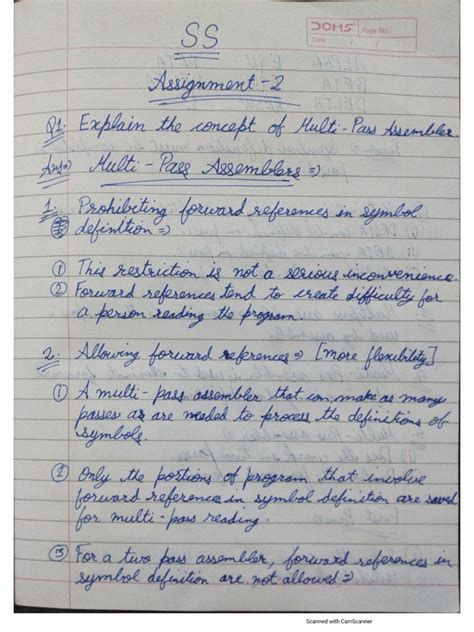 DOMS
Page No.
Date / /
SS
Assignment - 2
Q1. Explain the concept of Multi-Pass Assembler
Ans⇒ Multi - Pass Assemblers ⇒
1. Prohibiting forward references in symbol
definition ⇒
① This restriction is not a serious inconvenience.
② Forward references tend to create difficulty for
a person reading the program.
2. Allowing forward references ⇒ [more flexibility]
① A multi - pass assembler that can make as many
passes as are needed to process the definitions of
symbols.
② Only the portions of program that involve
forward reference in symbol definition are saved
for multi - pass reading.
③ For a two pass assembler, forward references in
symbol definition are not allowed ⇒
Scanned with CamScanner